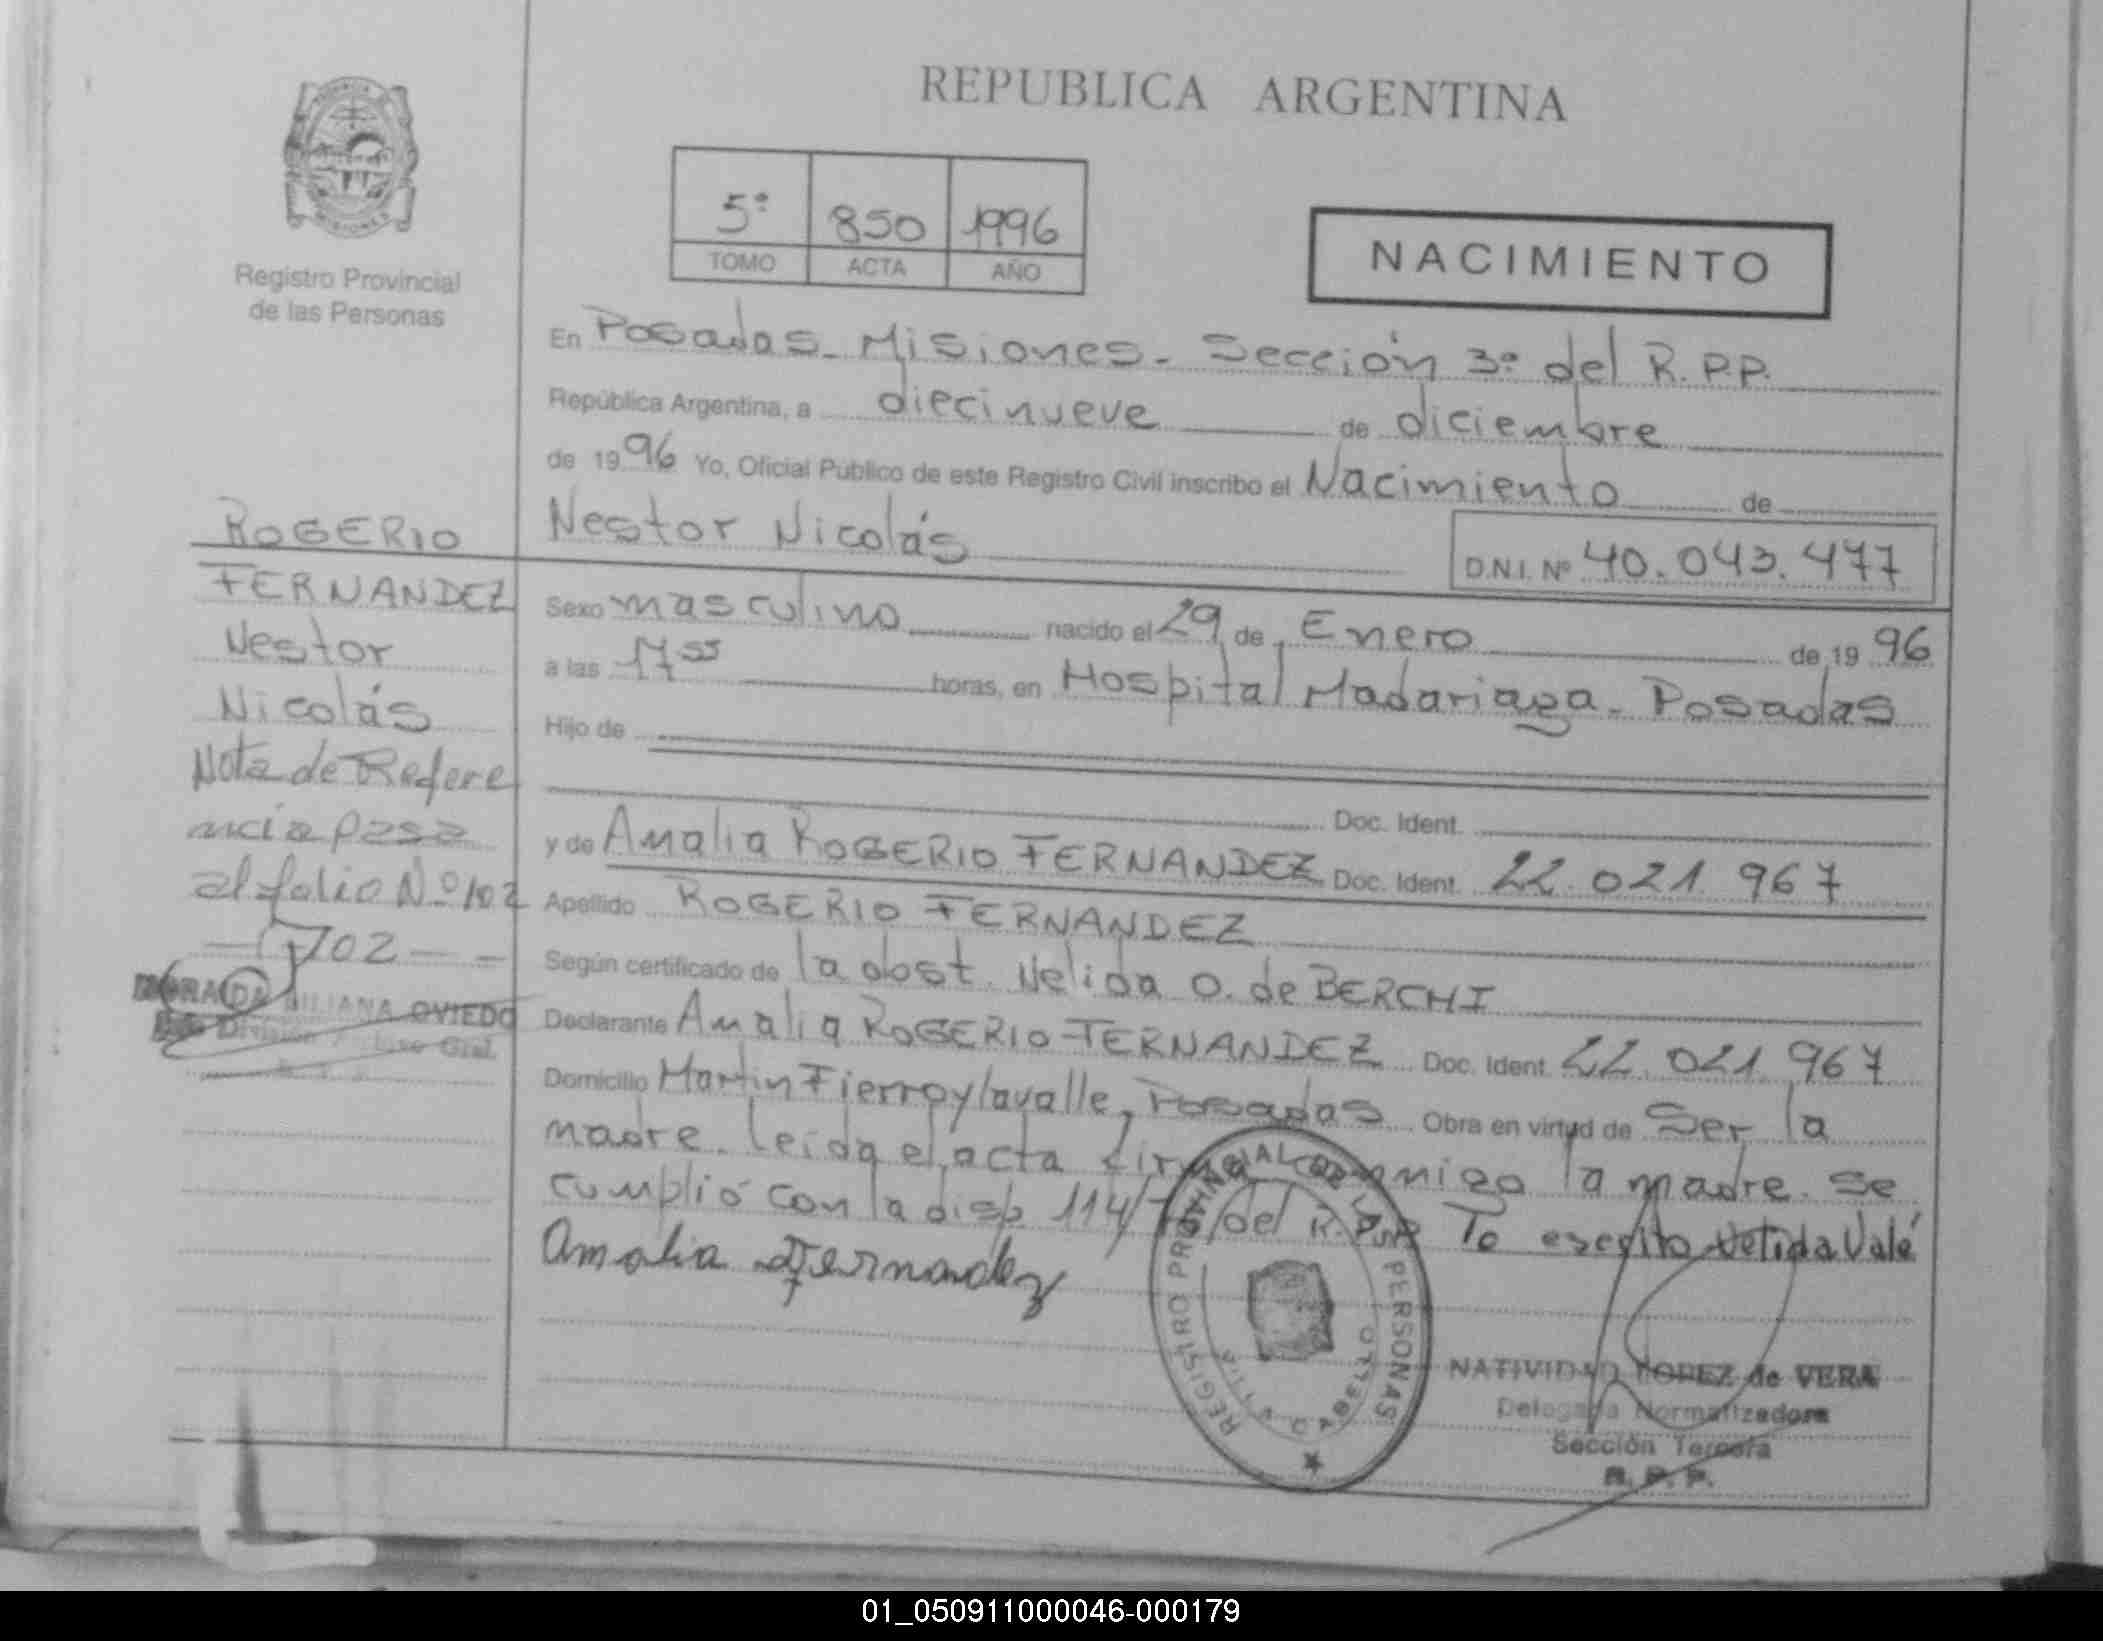 REPUBLICA ARGENTINA
5º 850 1996
TOMO ACTA AÑO
NACIMIENTO
Registro Provincial
de las Personas
En Posadas - Misiones - Sección 3º del R.P.P.
República Argentina, a diecinueve de diciembre
de 1996 Yo, Oficial Público de este Registro Civil inscribo el Nacimiento de
Nestor Nicolás
D.N.I. Nº 40.043.477
Sexo masculino nacido el 29 de Enero de 1996
a las 17 55 horas, en Hospital Madariaga - Posadas
Hijo de
Doc. Ident.
y de Amalia ROGERIO FERNANDEZ Doc. Ident. 22.021.967
Apellido ROGERIO FERNANDEZ
Según certificado de la obst. Nelida O. de BERCHI
Declarante Amalia ROGERIO FERNANDEZ Doc. Ident. 22.021.967
Domicilio Martin Fierro y lavalle, Posadas Obra en virtud de Ser la
madre. leida el acta firma conmigo la madre. Se
cumplió con la disp. 114/ del R.P.P. Te
Amalia Fernandez
ROGERIO
FERNANDEZ
Nestor
Nicolás
Nota de Refere
ncia pasa
al folio Nº 102
702
LILIANA OVIEDO
División Archivo Gral.
REGISTRO PROVINCIAL DE LAS PERSONAS
NATIVIDAD LOPEZ de VERA
Delegada Normalizadora
Sección Tercera
R. P. P.
01_050911000046-000179